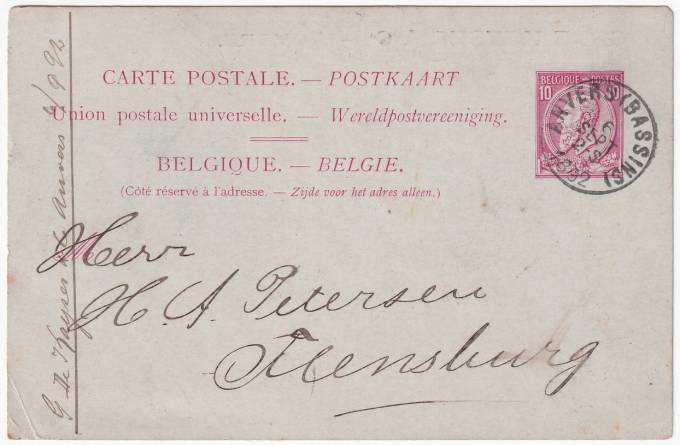 CARTE POSTALE. — POSTKAART
Union postale universelle. — Wereldpostvereeniging.
BELGIQUE. — BELGIE.
(Côté réservé à l'adresse. — Zijde voor het adres alleen.)
BELGIQUE POSTES
10
ANVERS (BASSINS)
6 S
SEPT
1892
Herr
H. A. Petersen
Flensburg
G De Keyser Anvers 6/9 92